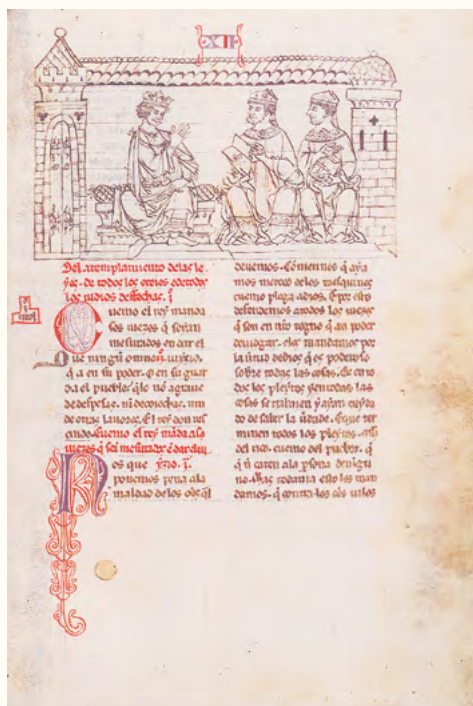 XII
Del atemplamiento delas le
yes. de todos los
los iudios
Cuemo el rey manda
sos iuezes q̃ seyan
mesurados en dar el
que ningũ omne
q̃ a en su poder. o en su guar
da el pueblo. q̃lo nõ agrauie
de despesas. ni de
de otras lauores. El rey don res
cindo. Cuemo el rey mãda alos
iuezes q̃ seã mesurados de dar iuy
Nos que yzio. i.
ponemos pena ala
maldad de los
deuemos. Comennos q̃ aya
mos merced delos mesquinos
cuemo plega a dios. E por esto
defendemos a todos los iuezes
q̃ son en nr̃o regno q̃ an poder
de iudgar. e los mandamos por
la uirtud de dios q̃ es poderoso
sobre todas las cosas. Que en to
dos los pleytos y en todas las
cosas y ayan cuyda
do de saber la uerdad. E que ter
minen todos los pleytos. assi
del rico. cuemo del pueblo. q̃
q̃ nõ caten ala psona de nigu
no. Mas todauia esto les man
damos. q̃ contra los uiles